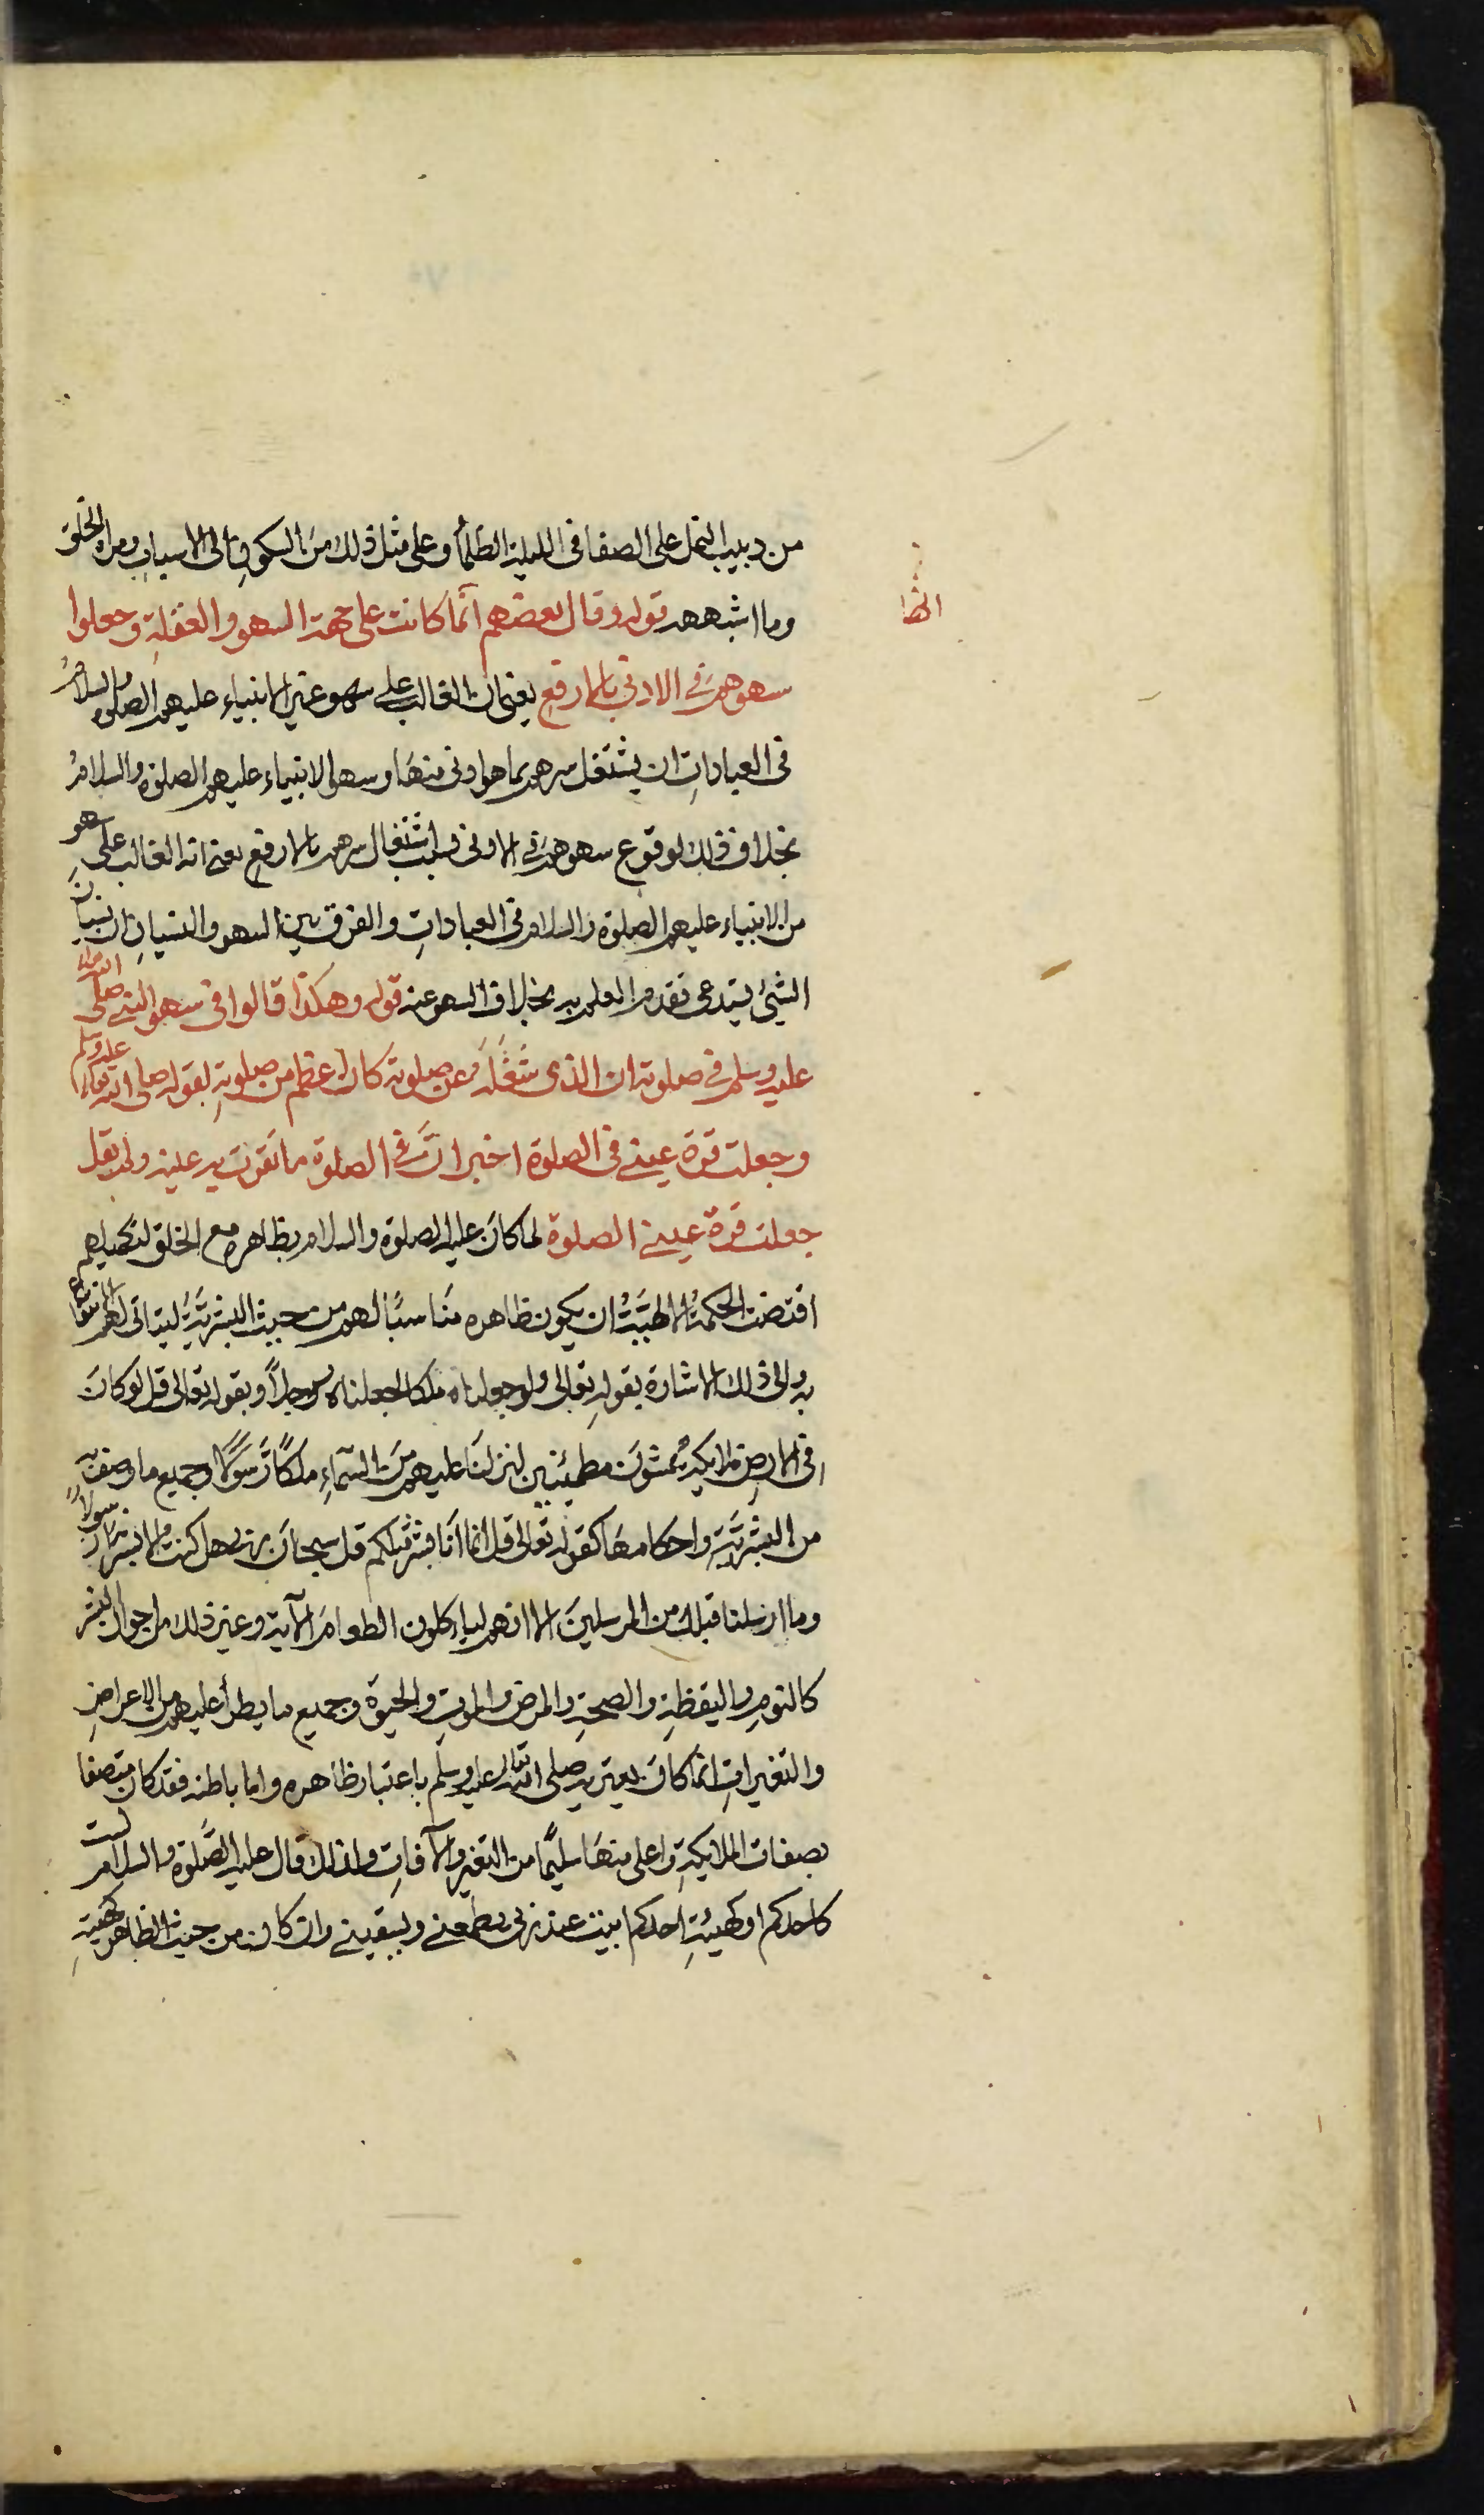 من دبيب النمل على الصفا فى الليلة الظلمأ وعلى مثل ذلك من السكون الى الاسباب ومراه الخلق
وما اشبهه قوله وقال بعضهم انما كانت على جهة السهو والغفلة وجعلوا
سهوهم فى الادنى بالارفع يعنى ان الغالب على سهو غير الانبياء عليهم الصلوة والسلام
فى العبادات ان يشتغل سرهم بما هو ادنى منها وسهو الانبياء عليهم الصلوة والسلام
بخلاف ذلك لوقوع سهوهم فى الادنى بسبب اشتغال سرهم بالارفع يعنى انه الغالب على سهو
من الانبياء عليهم الصلوة والسلام فى العبادات والفرق بين السهو والنسيان ان نسيان
الشئ يستدعى تقدم العلم به بخلاف السهو عنه قوله وهكذا قالوا فى سهو النبى صلى الله
عليه وسلم فى صلوته ان الذى شغله عن صلوته كان اعظم من صلوته لقوله صلى الله عليه وسلم
وجعلت قرة عينى فى الصلوة اخبر ان فى الصلوة ما تقر به عينه ولم يقل
جعلت قرة عينى الصلوة لما كان عليه الصلوة والسلام بظاهره مع الخلق لتكميلهم
اقتضت الحكمة الالهية ان يكون ظاهره مناسبا لهم من حيث البشرية ليتاتى لهم الانتفاع
به والى ذلك الاشارة بقوله تعالى ولو جعلناه ملكا لجعلناه رجلاً وبقوله تعالى قل لو كان
فى الارض ملايكة يمشون مطمئنين لنزلنا عليهم من السمآء ملكاً رسولاً وجميع ما وصف به
من البشرية واحكامها كقوله تعالى قل انما انا بشر مثلكم قل سبحان ربى هل كنت الا بشرا رسولاً
وما ارسلنا قبلك من المرسلين الا انهم لياءكلون الطعام الآية وغير ذلك من احوال البشر
كالنوم واليقظة والصحة والمرض والموت والحيوة وجميع ما يطرأ عليهم من الاعراض
والتغيرات انما كان يعتريه صلى الله تعالى عليه وسلم باعتبار ظاهره واما باطنه فقد كان متصفا
بصفات الملايكة واعلى منها سليماً من التغير والآفات ولذلك قال عليه الصّلوة والسلام لست
كاحدكم او كهيئة احدكم ابيت عند ربى يطعمنى ويسقينى وان كان من حيث الظاهر كهيئة